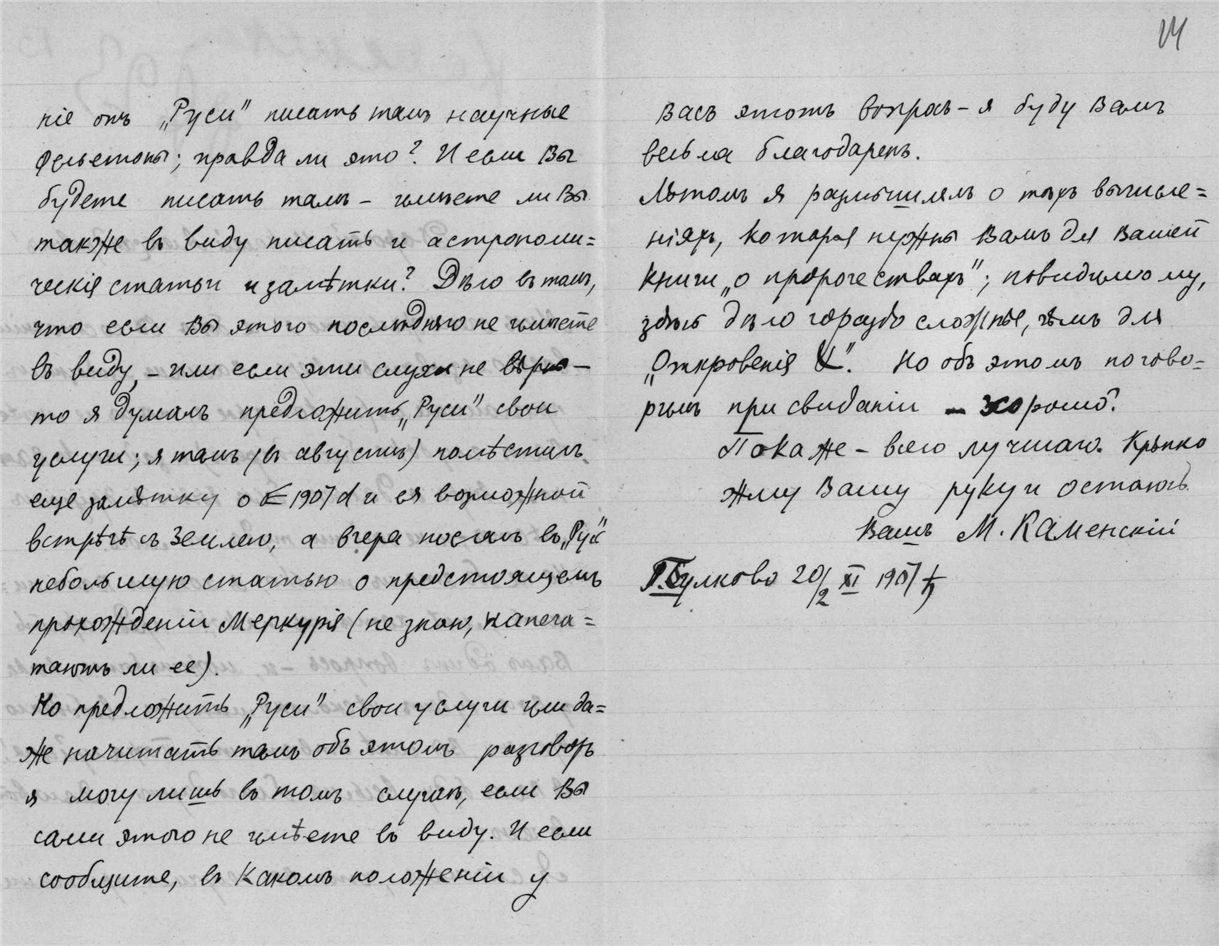 14
ніе отъ „Руси" писать тамъ научные
фельетоны; правда ли это? И если Вы
будете писать тамъ – имѣете ли Вы
также въ виду писать и астрономи=
ческія статьи и замѣтки? Дѣло въ томъ,
что если Вы этого послѣдняго не имѣете
въ виду, – или если эти слухи не вѣрны –
то я думалъ предложить „Руси" свои
услуги; я тамъ (въ августѣ) помѣстилъ
еще замѣтку о 1907 d и ея возможной
встрѣчѣ съ Землею, а вчера послалъ въ „Русь"
небольшую статью о предстоящемъ
прохожденіи Меркурія (не знаю, напеча=
таютъ ли ее).
Но предложить „Руси" свои услуги или да=
же начинать тамъ объ этомъ разговоръ
я могу лишь въ томъ случаѣ, если Вы
сами этого не имѣете въ виду. И если
сообщите, въ какомъ положеніи у
Васъ этотъ вопросъ – я буду Вамъ
весьма благодаренъ.
Лѣтомъ я размышлялъ о тѣхъ вычисле=
ніяхъ, которыя нужны Вамъ для Вашей
книги „о пророчествахъ"; повидимому,
здѣсь дѣло гораздо сложнѣе, чѣмъ для
„Откровенія". Но объ этомъ погово=
римъ при свиданіи – хорошо?
Пока же – всего лучшаго. Крѣпко
жму Вашу руку и остаюсь
Вашъ М. Каменскій
Пулково 20/2 XI 1907 г.